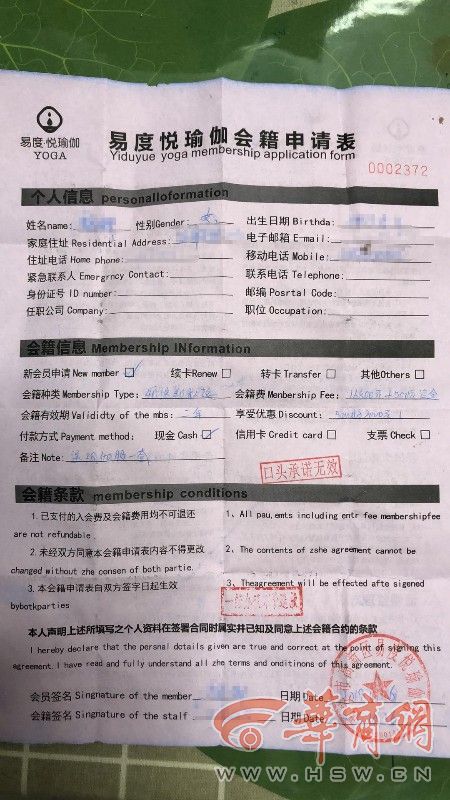 易度·悦瑜伽
YOGA
易度悦瑜伽会籍申请表
Yiduyue yoga membership application form
0002372
个人信息 personalloformation
姓名name: 性别Gender: 女 出生日期 Birthda:
家庭住址 Residential Address: 电子邮箱 E-mail:
住址电话 Home phone: 移动电话 Mobile:
紧急联系人 Emergrncy Contact: 联系电话 Telephone:
身份证号 ID number: 邮编 Posrtal Code:
任职公司 Company: 职位 Occupation:
会籍信息 Membership INformation
新会员申请 New member 续卡Renew 转卡 Transfer 其他Others
会籍种类 Membership Type: 会籍费 Menbership Fee:
会籍有效期 Valididty of the mbs: 二年 享受优惠 Discount:
付款方式 Payment method: 现金 Cash 信用卡 Credit card 支票 Check
备注 Note: 送瑜伽服一套
口头承诺无效
会籍条款 membership conditions
1. 已支付的入会费及会籍费用均不可退还 1、All pau,emts including entr fee membershipfee
are not refundable .
2. 未经双方同意本会籍申请表内容不得更改 2、The contents of zshe agreement cannot be
changed without zhe consen of both partie.
3. 本会籍申请表自双方签字日起生效 3、Theagreement will be effected afte sigened
bybotkparties
本人声明上述所填写之个人资料在签署合同时属实并已知及同意上述会籍合约的条款
I hereby declare that the persnal dotails given are true and correct at the point of signing this
agreement. I have read and fully understand all zhe terms and onditinons of this agreement.
会员签名 Singnature of the member 日期 Date
会籍签名 Singnature of the stalf 日期 Date
华商网
WWW.HSW.CN